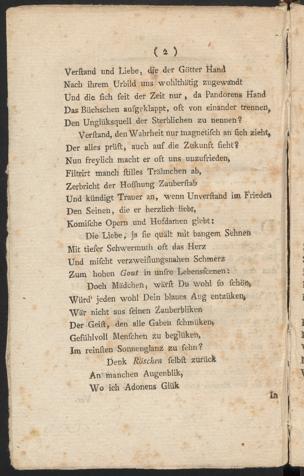 ( 2 )
Verſtand und Liebe, die der Götter Hand
Nach ihrem Urbild uns wohlthätig zugewandt
Und die ſich ſeit der Zeit nur, da Pandorens Hand
Das Büchschen aufgeklappt, oft von einander trennen,
Den Unglüksquell der Sterblichen zu nennen?
Verſtand, den Wahrheit nur magnetiſch an ſich zieht,
Der alles prüft, auch auf die Zukunft ſieht?
Nun freylich macht er oft uns unzufrieden,
Filtrirt manch ſtilles Träbmchen ab,
Zerbricht der Hoffnung Zauberſtab
Und kündigt Trauer an, wenn Unverſtand im Frieden
Den Seinen, die er herzlich liebt,
Komiſche Opern und Hofdamen giebt:
Die Liebe, ja ſie quält mit bangem Sehnen
Mit tiefer Schwermuth oft das Herz
Und miſcht verzweiflungsnahen Schmerz
Zum hohen Gout in unſre Lebensſcenen:
Doch Mädchen, wärſt Du wohl ſo ſchön,
Würd' jeden wohl Dein blaues Aug entzüken,
Wär nicht aus ſeinen Zauberbliken
Der Geiſt, den alle Gaben ſchmüken,
Gefühlvoll Menſchen zu beglüken,
Im reinſten Sonnenglanz zu ſehn?
Denk Röschen ſelbſt zurück
An manchen Augenblik,
Wo ich Adonens Glük
In